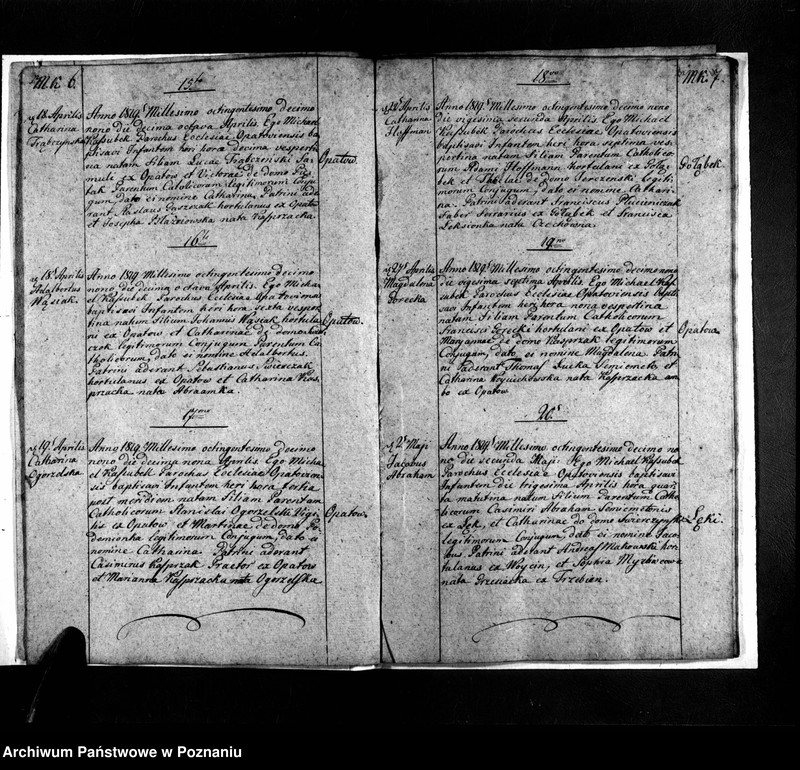 MK 6.
15to
18 Aprilis
Catharina
Trąbczynska
Anno 1819. Millesimo octingentesimo decimo
nono die decima octava Aprilis. Ego Michael
Kaſsubek Parochus Ecclesiae Opatoviensis ba
ptisavi Infantem heri hora decima vesperti
na natam Filiam Lucae Trąbczyński Fa
muli ex Opatow et Victorae de domo
Parentum Catolicorum legitimorum Conju
gum, dato ei nomine Catharina, Patrini ade
rant hortulanus ex Opatow
et Josepha nata Kaſprzacka.
Opatow.
16to
18 Aprilis
Adalbertus
Wąsiak.
Anno 1819 Millesimo octingentesimo decimo
nono die decima octava Aprilis. Ego Micha
el Kaſsubek Parochus Eclesiae Opatoviensis
baptisavi Infantem heri hora sexta vesper
tina natum Filium Wąsiak hortula
ni ex Opatow et Catharinae de domo
czok legitimorum Conjugum Parentum Ca
tholicorum, dato ei nomine Adalbertus.
Patrini aderant Sebastianus, Wieeczak
hortulanus ex Opatow et Catharina Kas
przacka nata Abraamka.
Opatow.
17mo
19 Aprilis
Catharina
Ogorzelska
Anno 1819. Millesimo octingentesimo decimo
nono die decima nena Aprilis Ego Micha
el Kaſsubek Parochus Ecclesiae Opatovien
sis baptisavi Infantem heri hora tertia
post meridiem natam Filiam Parentum
Catholicorum Stanislai Ogorzelski Vigi
lis ex Opatow et Martinae de domo Po
Demionka legitimorum Conjugum, dato ei
nomine Catharina. Patrini aderant
Casimirus Kaſprzak Praetor ex Opatow
et Marianna Kaſprzacka nata Ogorzelſka
Opatow.
MK 7.
18vo
22 Aprilis
Catharina
Hoffman
Anno 1819. Millesimo octingentesimo decimo nono
die vigesima secunda Aprilis, Ego Michael
Kaſsubek Parochus Ecclesiae Opatoviensis
baptisavi Infantem heri hora septima ves
pertina natam Filiam Parentum Catholico
rum Adami Hoffmann hortulani ex Gołą
bek et Theclae de domo legiti
morum Conjugum, dato ei nomine Cathari
na. Patrini aderant Franciscus
Faber Ferrarius ex Gołąbek et Francisca
nata Czechowna.
Gołąbek.
19no
27 Aprilis
Magdalena
Gorecka
Anno 1819. Millesimo octingentesimo decimo nono
die vigesima septima Aprilis, Ego Michael Kaſ
subek Parochus Ecclesiae Opatoviensis bapti
savi Infantem heri hora nona vespertina
natam Filiam Parentum Catholicorum
Francisci Gorecki hortulani ex Opatow et
Maryannae de domo Kasprzak legitimorum
Conjugum, dato ei nomine Magdalena. Patri
ni aderant Thomas Lucka Semicmeto et
Catharina Woyciechowska nata Kaſprzacka am
bo ex Opatow
Opatow.
20.
2 Maji
Jacobus
Abraham
Anno 1819. Millesimo octingentesimo decimo no
no die secunda Maji. Ego Michael Kaſsubek
Parochus Ecclesiae Opatoviensis baptisavi
Infantem die trigesima Aprilis hora quar
ta matutina natum Filium Parentum Catho
licorum Casimiri Abraham Semicmetonis
ex Łęk, et Catharinae de domo
legitimorum Conjugum, dato ei nomine Jaco
bus, Patrini aderant Andreaſ Makowski hor
tulanus ex Woycin, et Sophia
nata ex Trzebien.
Łęki.
Archiwum Państwowe w Poznaniu